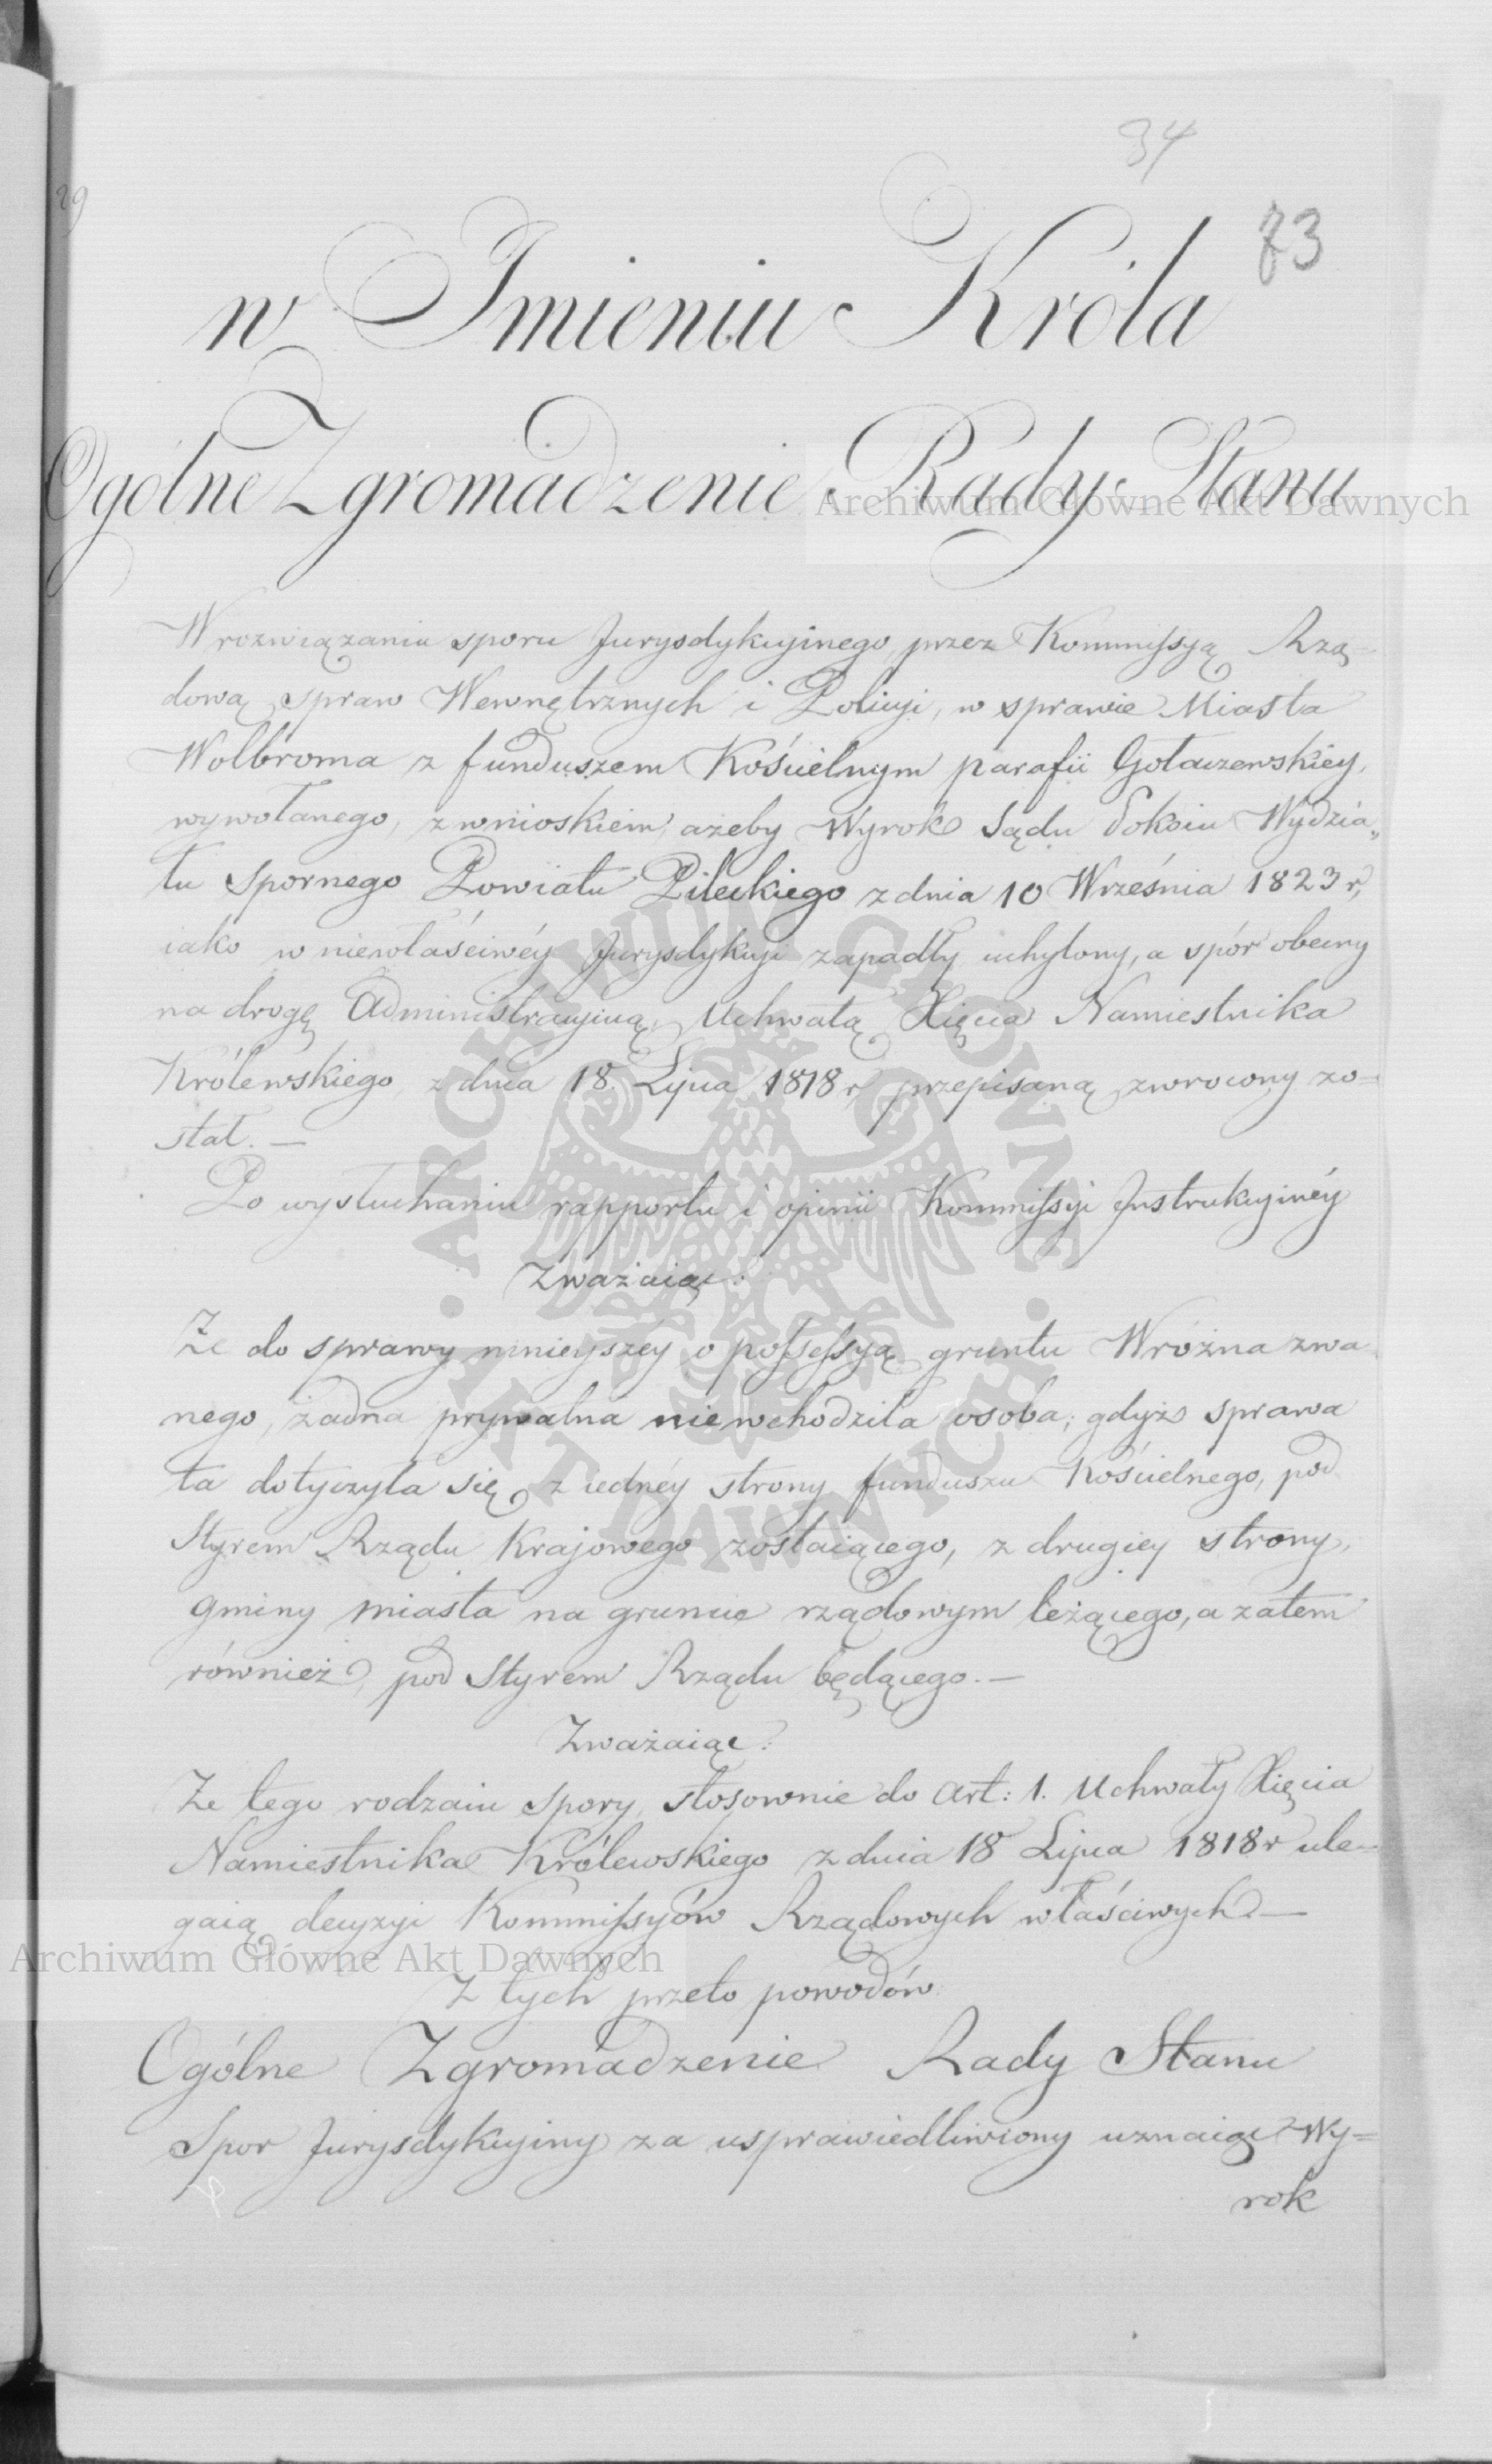 34
83
29
w Imieniu Króla
Ogólne Zgromadzenie Rady Stanu
Archiwum Główne Akt Dawnych
W rozwiązaniu sporu Jurysdykcyinego przez Kommissyą Rzą-
dową spraw Wewnętrznych i Policyi, w sprawie Miasta
Wolbroma z funduszem Kościelnym parafii Gołaczewskiey,
wywołanego, z wnioskiem ażeby Wyrok Sądu Pokoiu Wydzia„
łu Spornego Powiatu Pileckiego z dnia 10 Września 1823 r,
iako w niewłaściwéy Jurysdykcyi zapadły uchylony, a spór obecny
na drogę Administracyiną, Uchwałą Xięcia Namiestnika
Królewskiego z dnia 18 Lipca 1818 r, przepisaną zwrocony zo=
stał. —
Po wysłuchaniu rapportu i opinii Kommissyi Instrukcyinéy
Zważaiąc:
Że do sprawy ninieyszey o possessyą gruntu Wróżna zwa-
nego, żadna prywatna niewchodziła osoba; gdyż sprawa
ta dotyczyła się z iednéy strony funduszu Kościelnego, pod
Styrem Rządu Krajowego zostaiącego, z drugiey strony,
gminy miasta na gruncie rządowym leżącego, a zatem
również pod Styrem Rządu będącego. —
Zważaiąc:
Że tego rodzaiu spory, stosownie do Art: 1. Uchwały Xięcia
Namiestnika Królewskiego z dnia 18 Lipca 1818 r ule-
gaią decyzyi Kommissyów Rządowych właściwych. —
Archiwum Główne Akt Dawnych
Z tych przeto powodów
Ogólne Zgromadzenie Rady Stanu
Spor Jurysdykcyiny za usprawiedliwiony uznaiąc Wy=
rok
ARCHIWUM GŁÓWNE AKT DAWNYCH